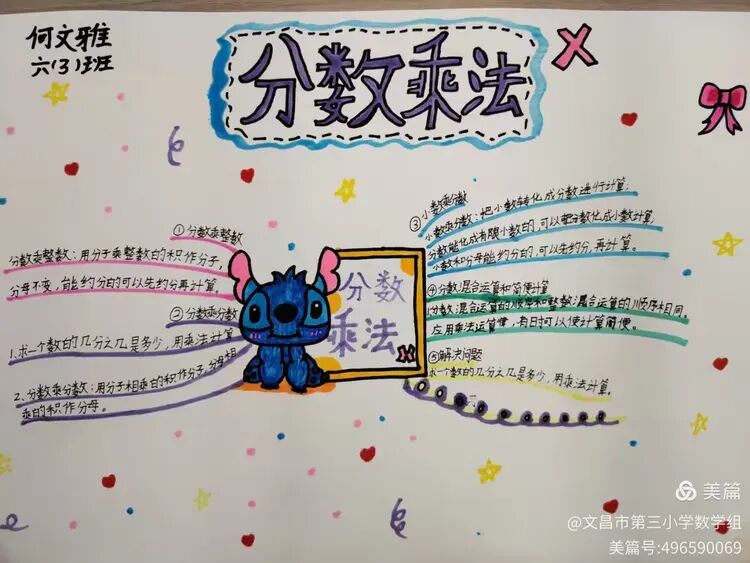 何文雅
六(3)班
分数乘法
①分数乘整数
分数乘整数:用分子乘整数的积作分子,
分母不变,能约分的可以先约分再计算
②分数乘分数
1.求一个数的几分之几是多少,用乘法计算
2、分数乘分数:用分子相乘的积作分子,分母相
乘的积作分母。
分数
乘法
③小数乘分数
小数乘分数:把小数转化成分数进行计算;
分数能化成有限小数的,可以把分数化成小数计算,
小数和分母能约分的,可以先约分,再计算。
④分数混合运算和简便计算
分数混合运算的顺序和整数混合运算的顺序相同,
应用乘法运算律,有时可以使计算简便。
⑤解决问题
求一个数的几分之几是多少,用乘法计算。
美篇
@文昌市第三小学数学组
美篇号:496590069